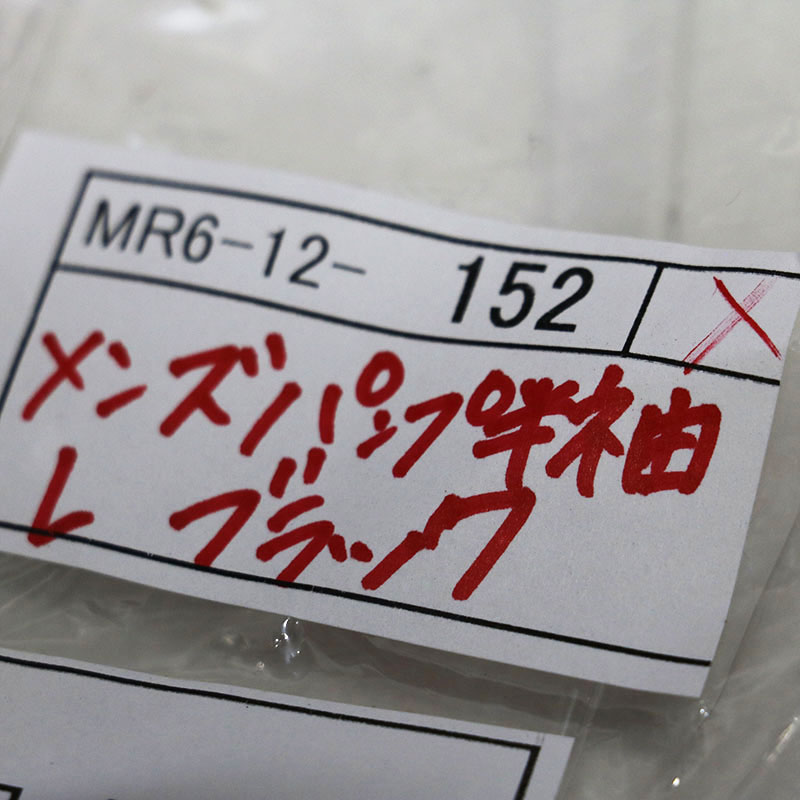 MR6-12- 152 X
メンズパップ半袖
L ブラック